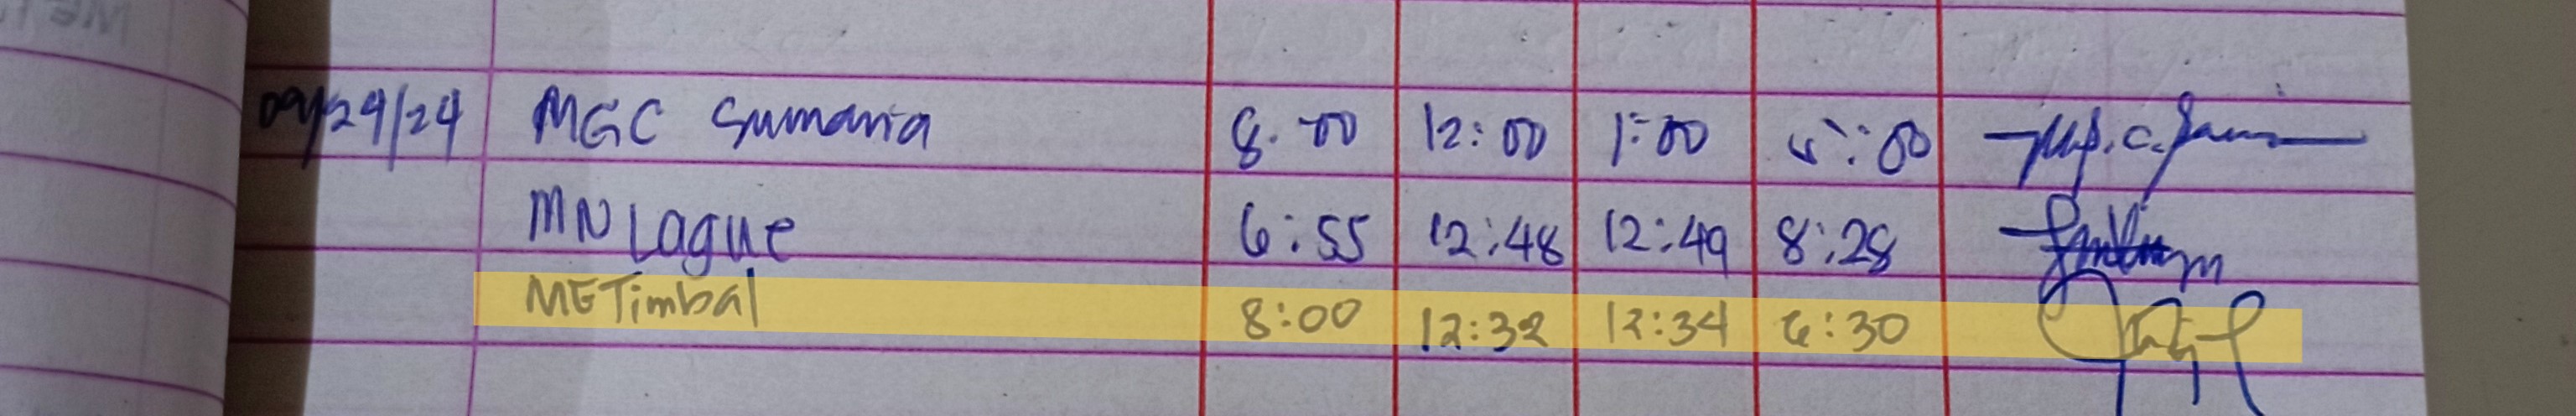 09/24/24 MGC Sumania 8:00 12:00 1:00 5:00
MN Lague 6:55 12:48 12:49 8:28
METimbal 8:00 12:32 12:34 6:30